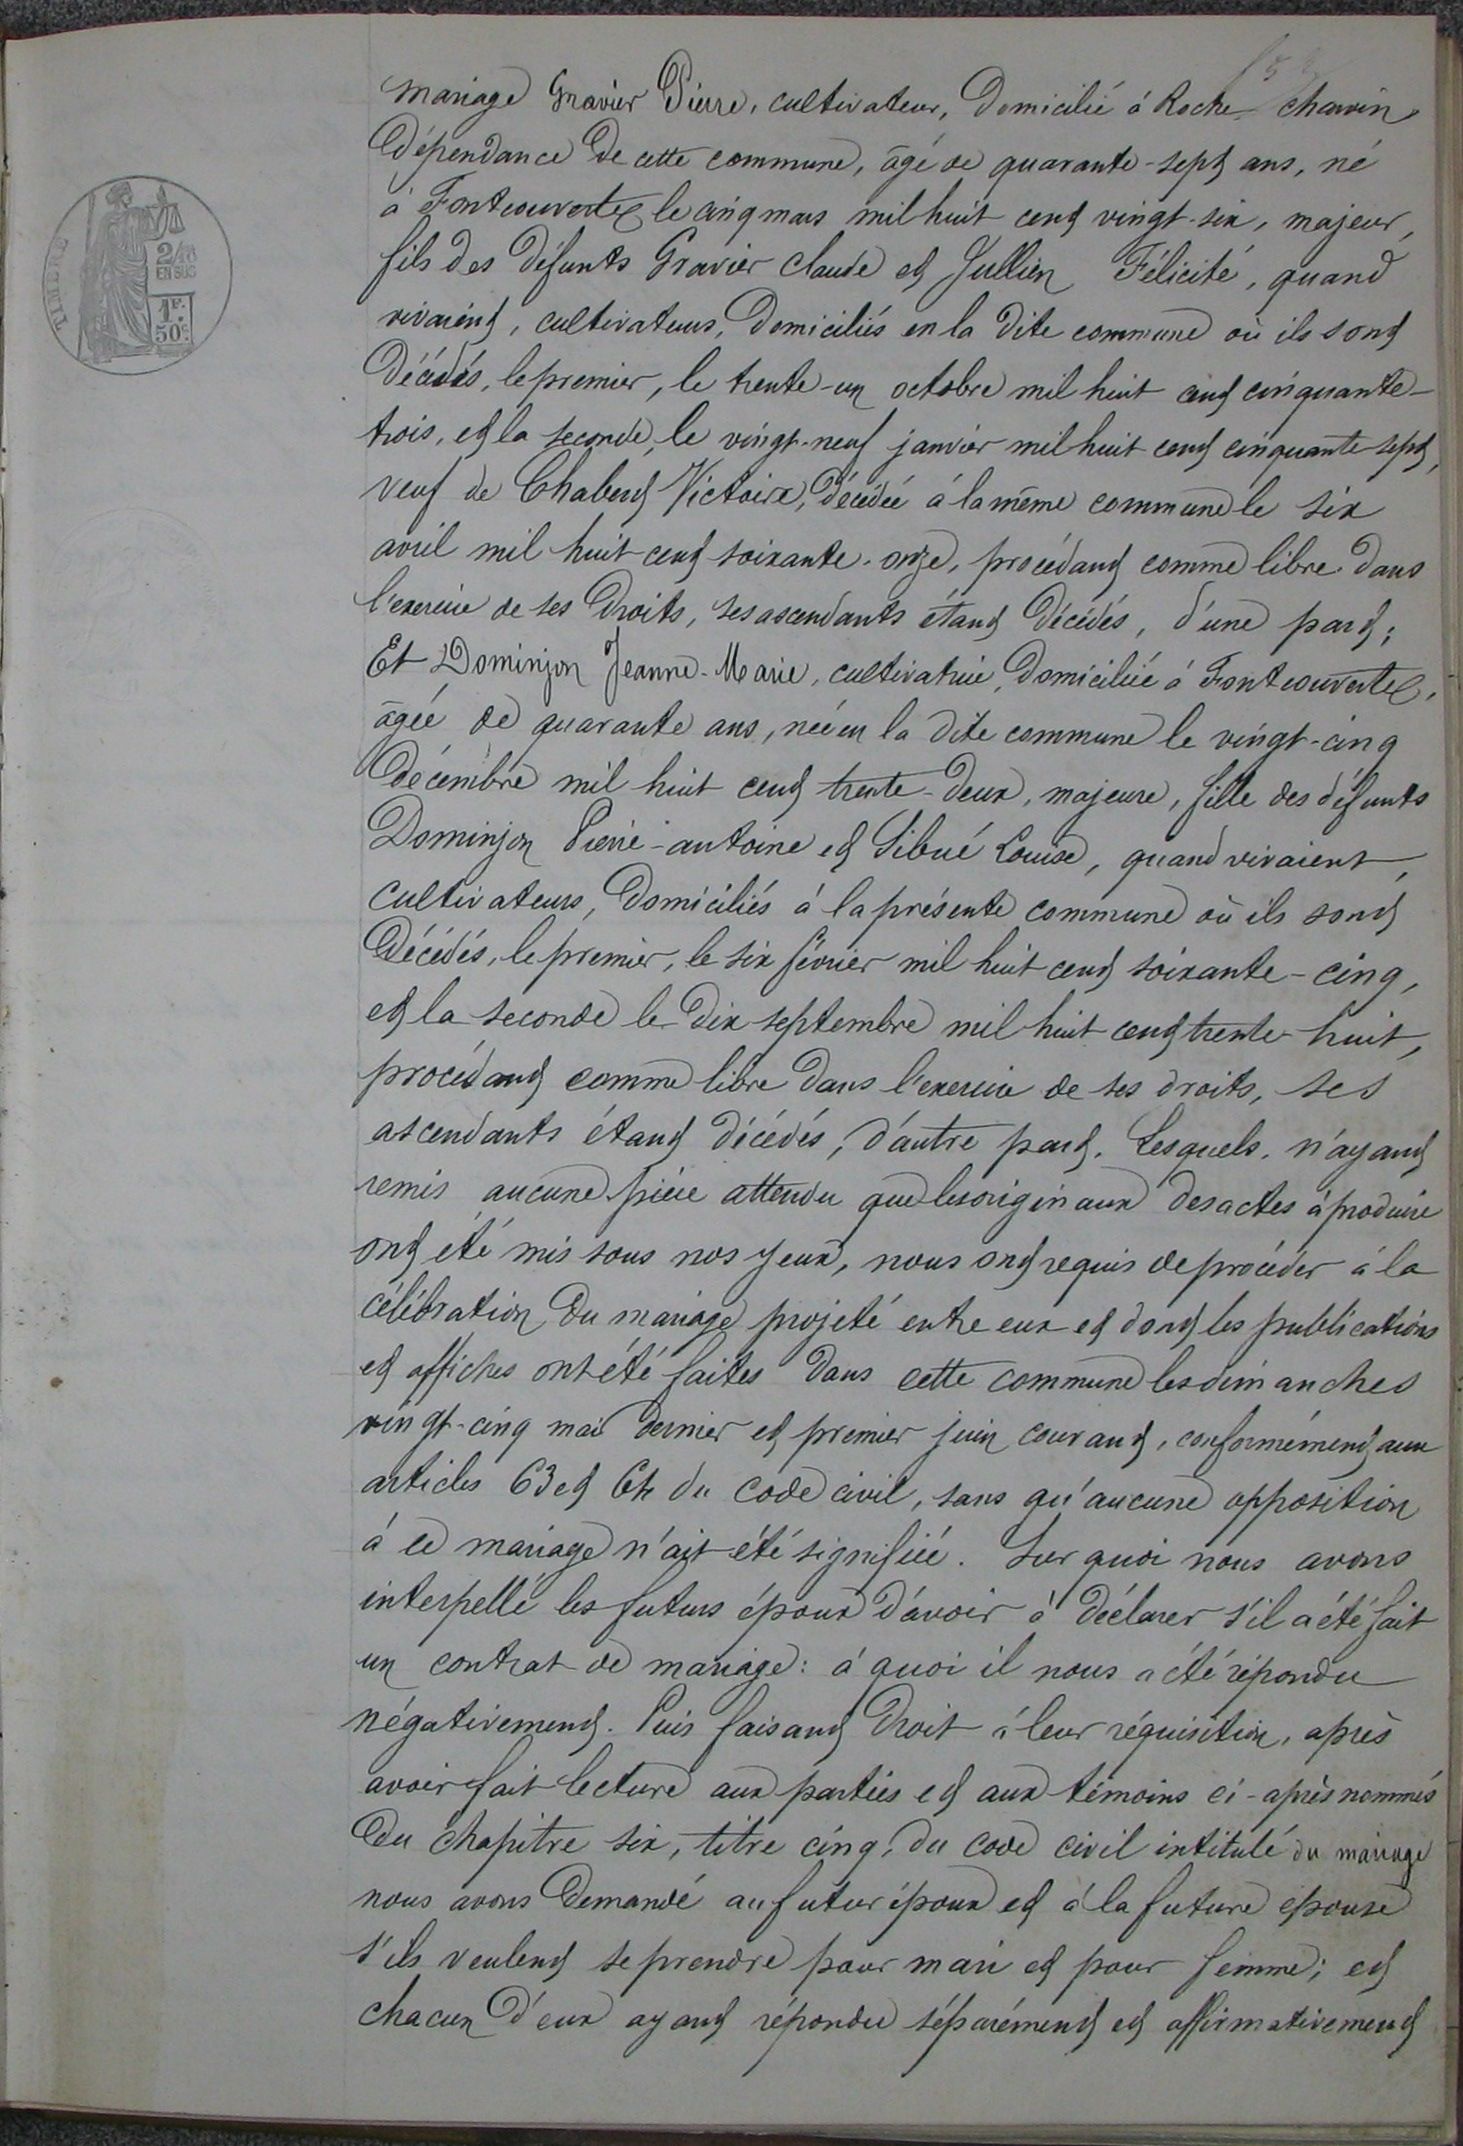 mariage Gravier Pierre, cultivateur, domicilié à Roche-chavin
dépendance de cette commune, âgé de quarante-sept ans, né
à Fontcouverte le cinq mars mil huit cent vingt-six, majeur,
fils des défunts Gravier Claude et Jullien Félicité, quand
vivaient, cultivateurs, domiciliés en la dite commune où ils sont
décédés, le premier, le trente-un octobre mil huit cent cinquante-
trois, et la seconde, le vingt-neuf janvier mil huit cent cinquante-sept,
veuf de Chabert Victoire, décédée à la même commune le six
avril mil huit cent soixante-onze, procédant comme libre dans
l'exercice de ses droits, ses ascendants étant décédés, d'une part;
Et Dominjon Jeanne-Marie, cultivatrice, domiciliée à Fontcouverte,
âgée de quarante ans, née en la dite commune le vingt-cinq
décembre mil huit cent trente-deux, majeure, fille des défunts
Dominjon Pierre-antoine et Sibué Louise, quand vivaient,
cultivateurs, domiciliés à la présente commune où ils sont
décédés, le premier, le six février mil huit cent soixante-cinq,
et la seconde le dix septembre mil huit cent trente-huit,
procédant comme libre dans l'exercice de ses droits, ses
ascendants étant décédés, d'autre part. Lesquels, n'ayant
remis aucune pièce attendu que les originaux des actes à produire
ont été mis sous nos yeux, nous ont requis de procéder à la
célébration du mariage projeté entre eux et dont les publications
et affiches ont été faites dans cette commune les dimanches
vingt-cinq mai dernier et premier juin courant, conformément aux
articles 63 et 64 du code civil, sans qu'aucune opposition
à ce mariage n'ait été signifiée. Sur quoi nous avons
interpellé les futurs époux d'avoir à déclarer s'il a été fait
un contrat de mariage: à quoi il nous a été répondu
négativement. Puis faisant droit à leur réquisition, après
avoir fait lecture aux parties et aux témoins ci-après nommés
du chapitre six, titre cinq, du code civil intitulé du mariage
nous avons demandé au futur époux et à la future épouse
s'ils veulent se prendre pour mari et pour femme; et
chacun d'eux ayant répondu séparément et affirmativement
TIMBRE
2/10
EN SUS
1F.
50c.